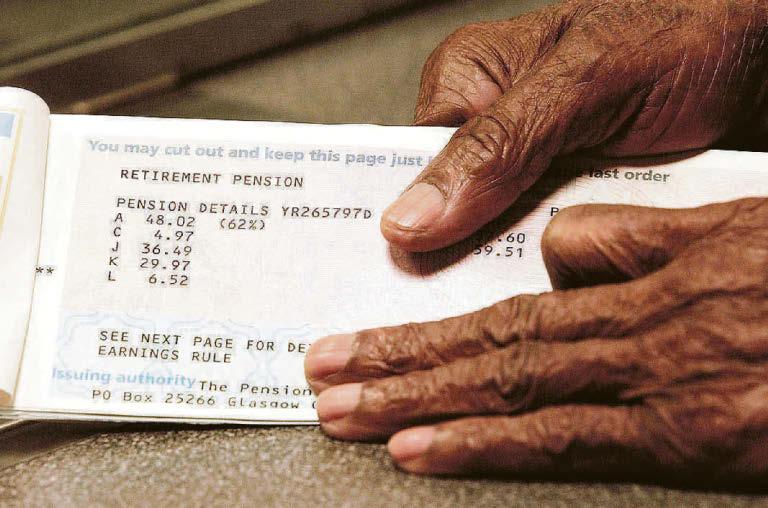 You may cut out and keep this page just
last order
RETIREMENT PENSION
PENSION DETAILS YR265797D
A 48.02 (62%)
C 4.97
J 36.49
K 29.97
L 6.52
.60
9.51
**
SEE NEXT PAGE FOR DE
EARNINGS RULE
Issuing authority The Pension
PO Box 25266 Glasgow